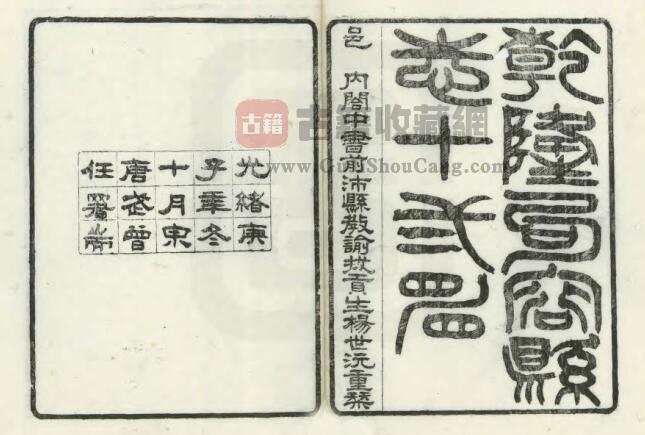 乾隆句容縣
志十弍
邑 內閣中書前沛縣教諭拔貢生楊世沅重栞
光緒庚
子年冬
十月宋
唐 曾
任署耑
古籍
古籍收藏網
www.GujiShouCang.com